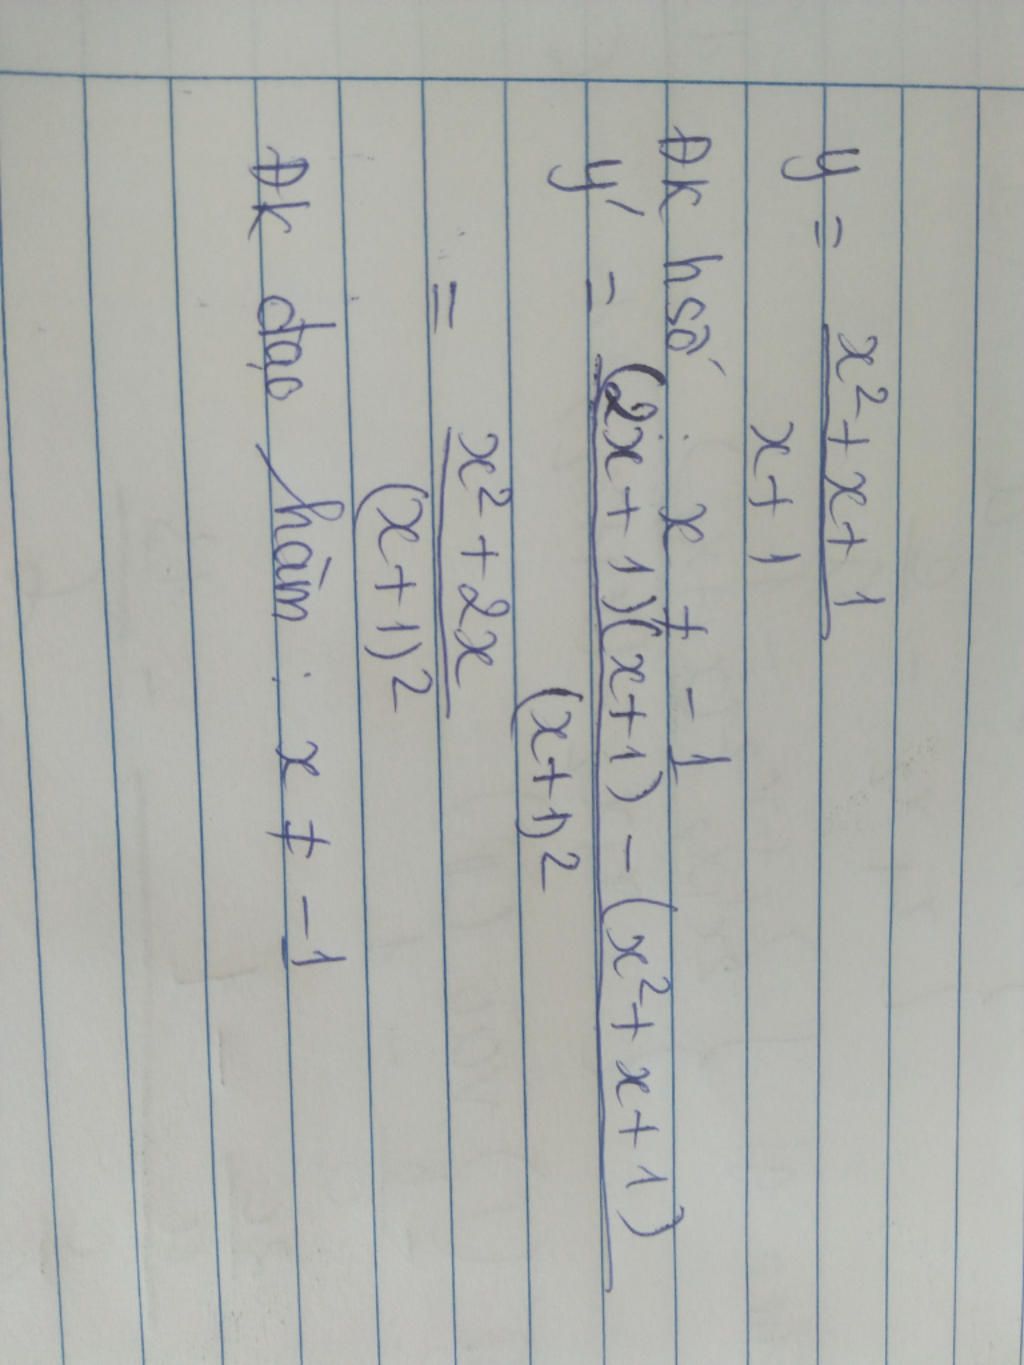 y = x² + x + 1
x + 1
Đk h số : x ≠ -1
y' = (2x + 1)(x + 1) - (x² + x + 1)
(x + 1)²
= x² + 2x
(x + 1)²
Đk đạo hàm : x ≠ -1